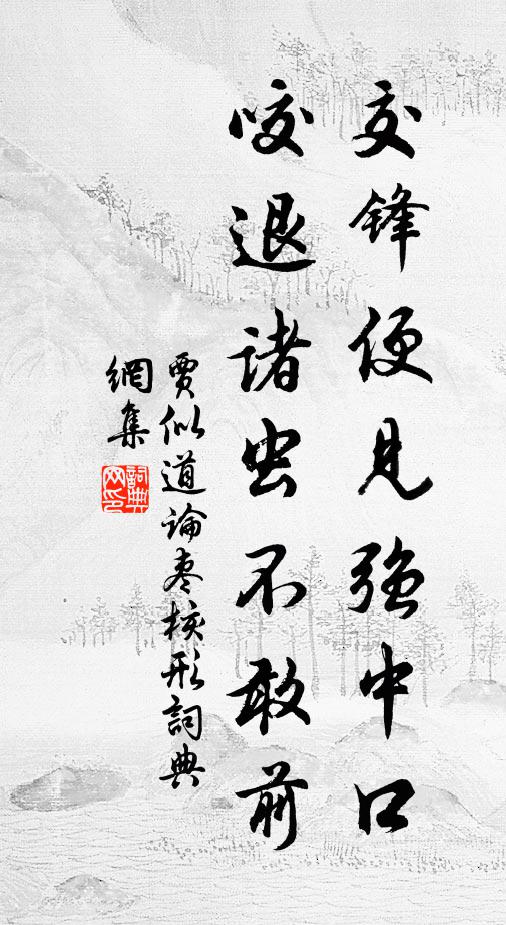 交锋便见强中口
咬退诸虫不敢前
賈似道論枣核形詞典
網集
詞典
网印